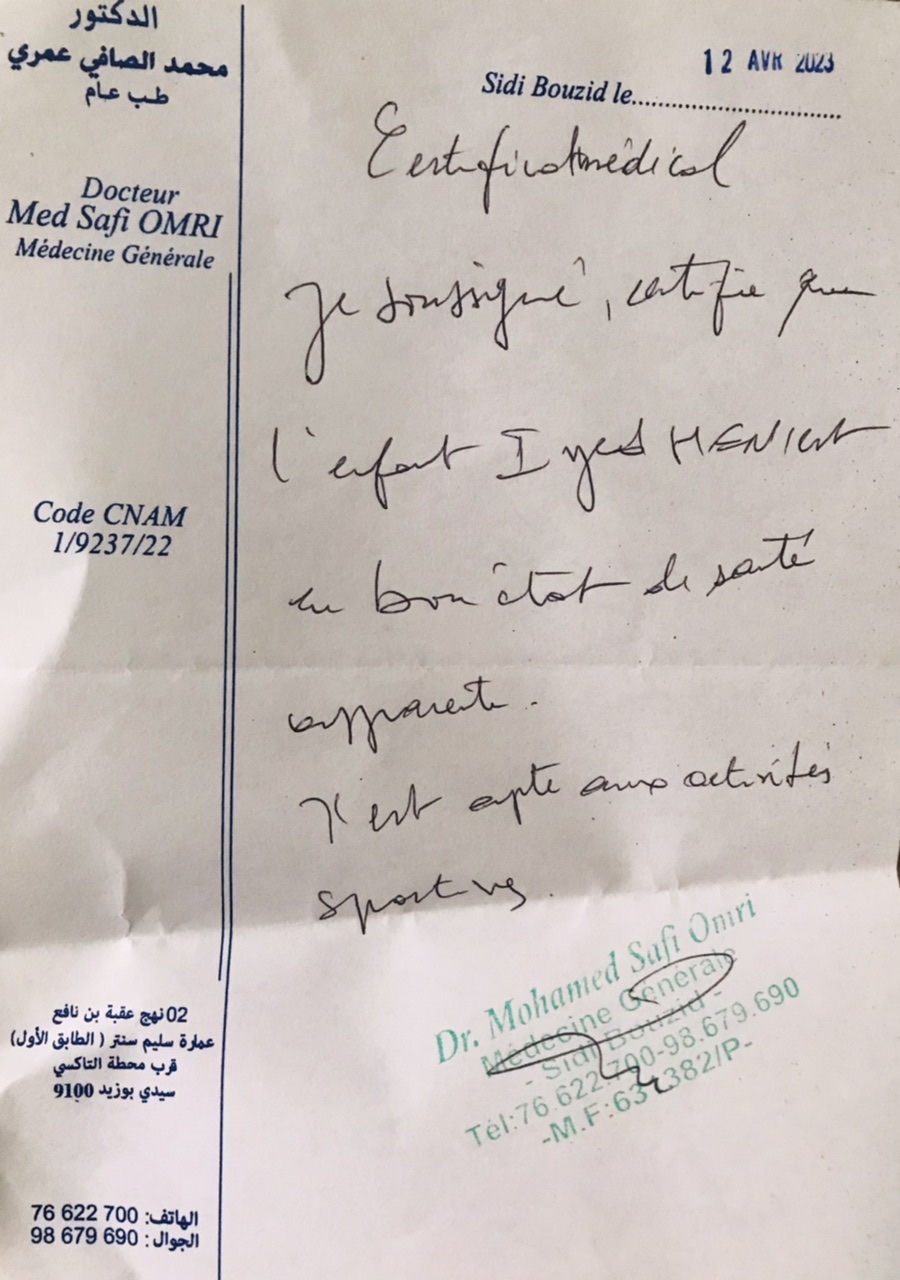 الدكتور
محمد الصافي عمري
طب عام
Docteur
Med Safi OMRI
Médecine Générale
Code CNAM
1/9237/22
02 نهج عقبة بن نافع
عمارة سليم سنتر ( الطابق الأول)
قرب محطة التاكسي
سيدي بوزيد 9100
الهاتف: 76 622 700
الجوال : 98 679 690
12 AVR 2023
Sidi Bouzid le
Certificat médical
Je soussigné, certifie que
l'enfant Iyed HENI est
en bon état de santé
apparente.
Il est apte aux activités
sportives.
Dr. Mohamed Safi Omri
Médecine Générale
- Sidi Bouzid -
Tél:76.622.700-98.679.690